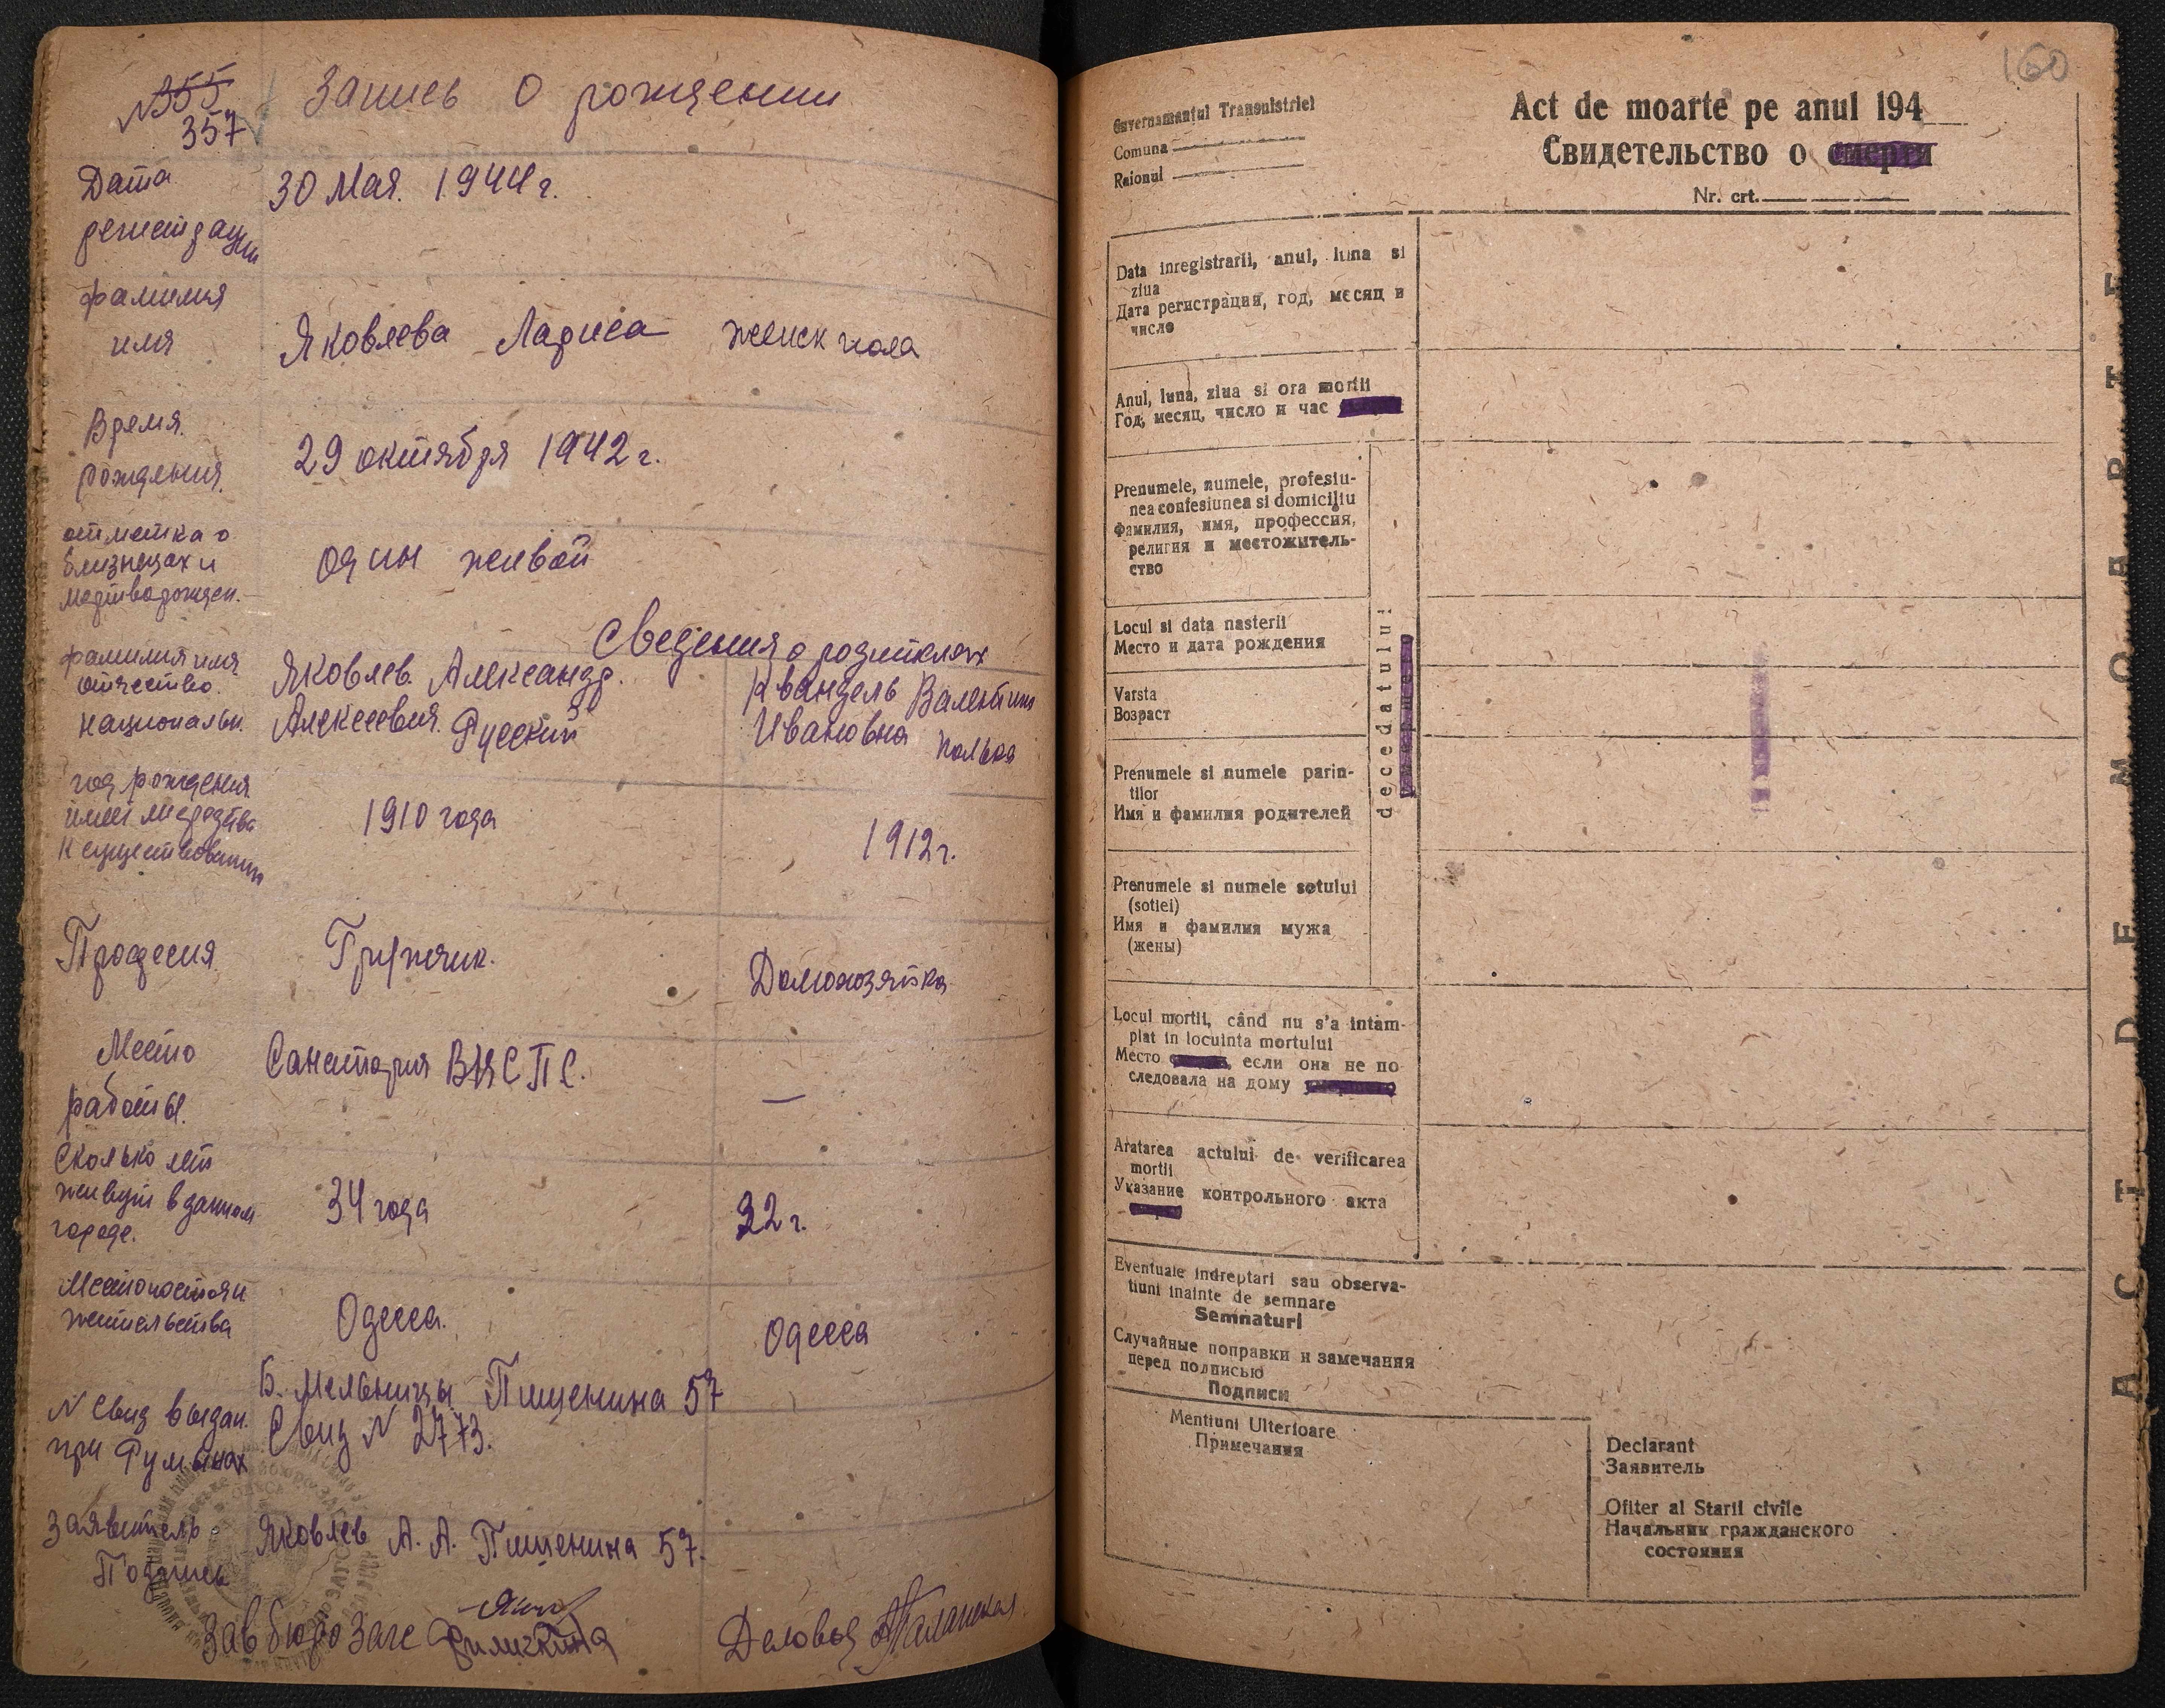 № 355
357
Запись о рождении
Дата регистрации
30 Мая. 1944 г.
фамилия имя
Яковлева Лариса женск пола
Время рождения.
29 октября 1942 г.
отметка о близнецах и мертворожден.
один живой
Сведения о родителях
фамилия имя отчество. национальн.
Яковлев Александр.
Алексеевич. Русский
Квандель Валентин
Ивановна полька
год рождения
1910 года
1912 г.
к существованию
Професия
Грузчик.
Домохозяйка
Место работы.
Санатория ВЦСПС.
—
Сколько лет живут в данном городе.
34 года
32 г.
Местопостоян жительства
Одесса.
Одесса
Б. Мельницы Пишенина 57
N Свид выдан. при Румынах
Свид N 2773.
Заявитель Подпись
Яковлев А. А. Пишенина 57.
Зав бюро Загс
Деловод
160
Guvernamantul Transnistriei
Comuna
Raionul
Act de moarte pe anul 194
Свидетельство о смерти
Nr. crt.
Data inregistrarii, anul, luna si
ziua
Дата регистрации, год, месяц и
число
Anul, luna, ziua si ora mortii
Год, месяц, число и час
Prenumele, numele, profesiu-
nea confesiunea si domiciliu
Фамилия, имя, профессия,
религия и местожитель-
ство
Locul si data nasterii
Место и дата рождения
Varsta
Возраст
Prenumele si numele parin-
tilor
Имя и фамилия родителей
Prenumele si numele sotului
(sotiei)
Имя и фамилия мужа
(жены)
decedatului
Locul mortii, când nu s'a intam-
plat in locuinta mortului
Место , если она не по
следовала на дому
Aratarea actului de verificarea
mortii
Указание контрольного акта
Eventuale indreptari sau observa-
tiuni inainte de semnare
Semnaturi
Случайные поправки и замечания
перед подписью
Подписи
Mentiuni Ulterioare
Примечания
Declarant
Заявитель
Ofiter al Starii civile
Начальник гражданского
состояния
ACT DE MOARTE